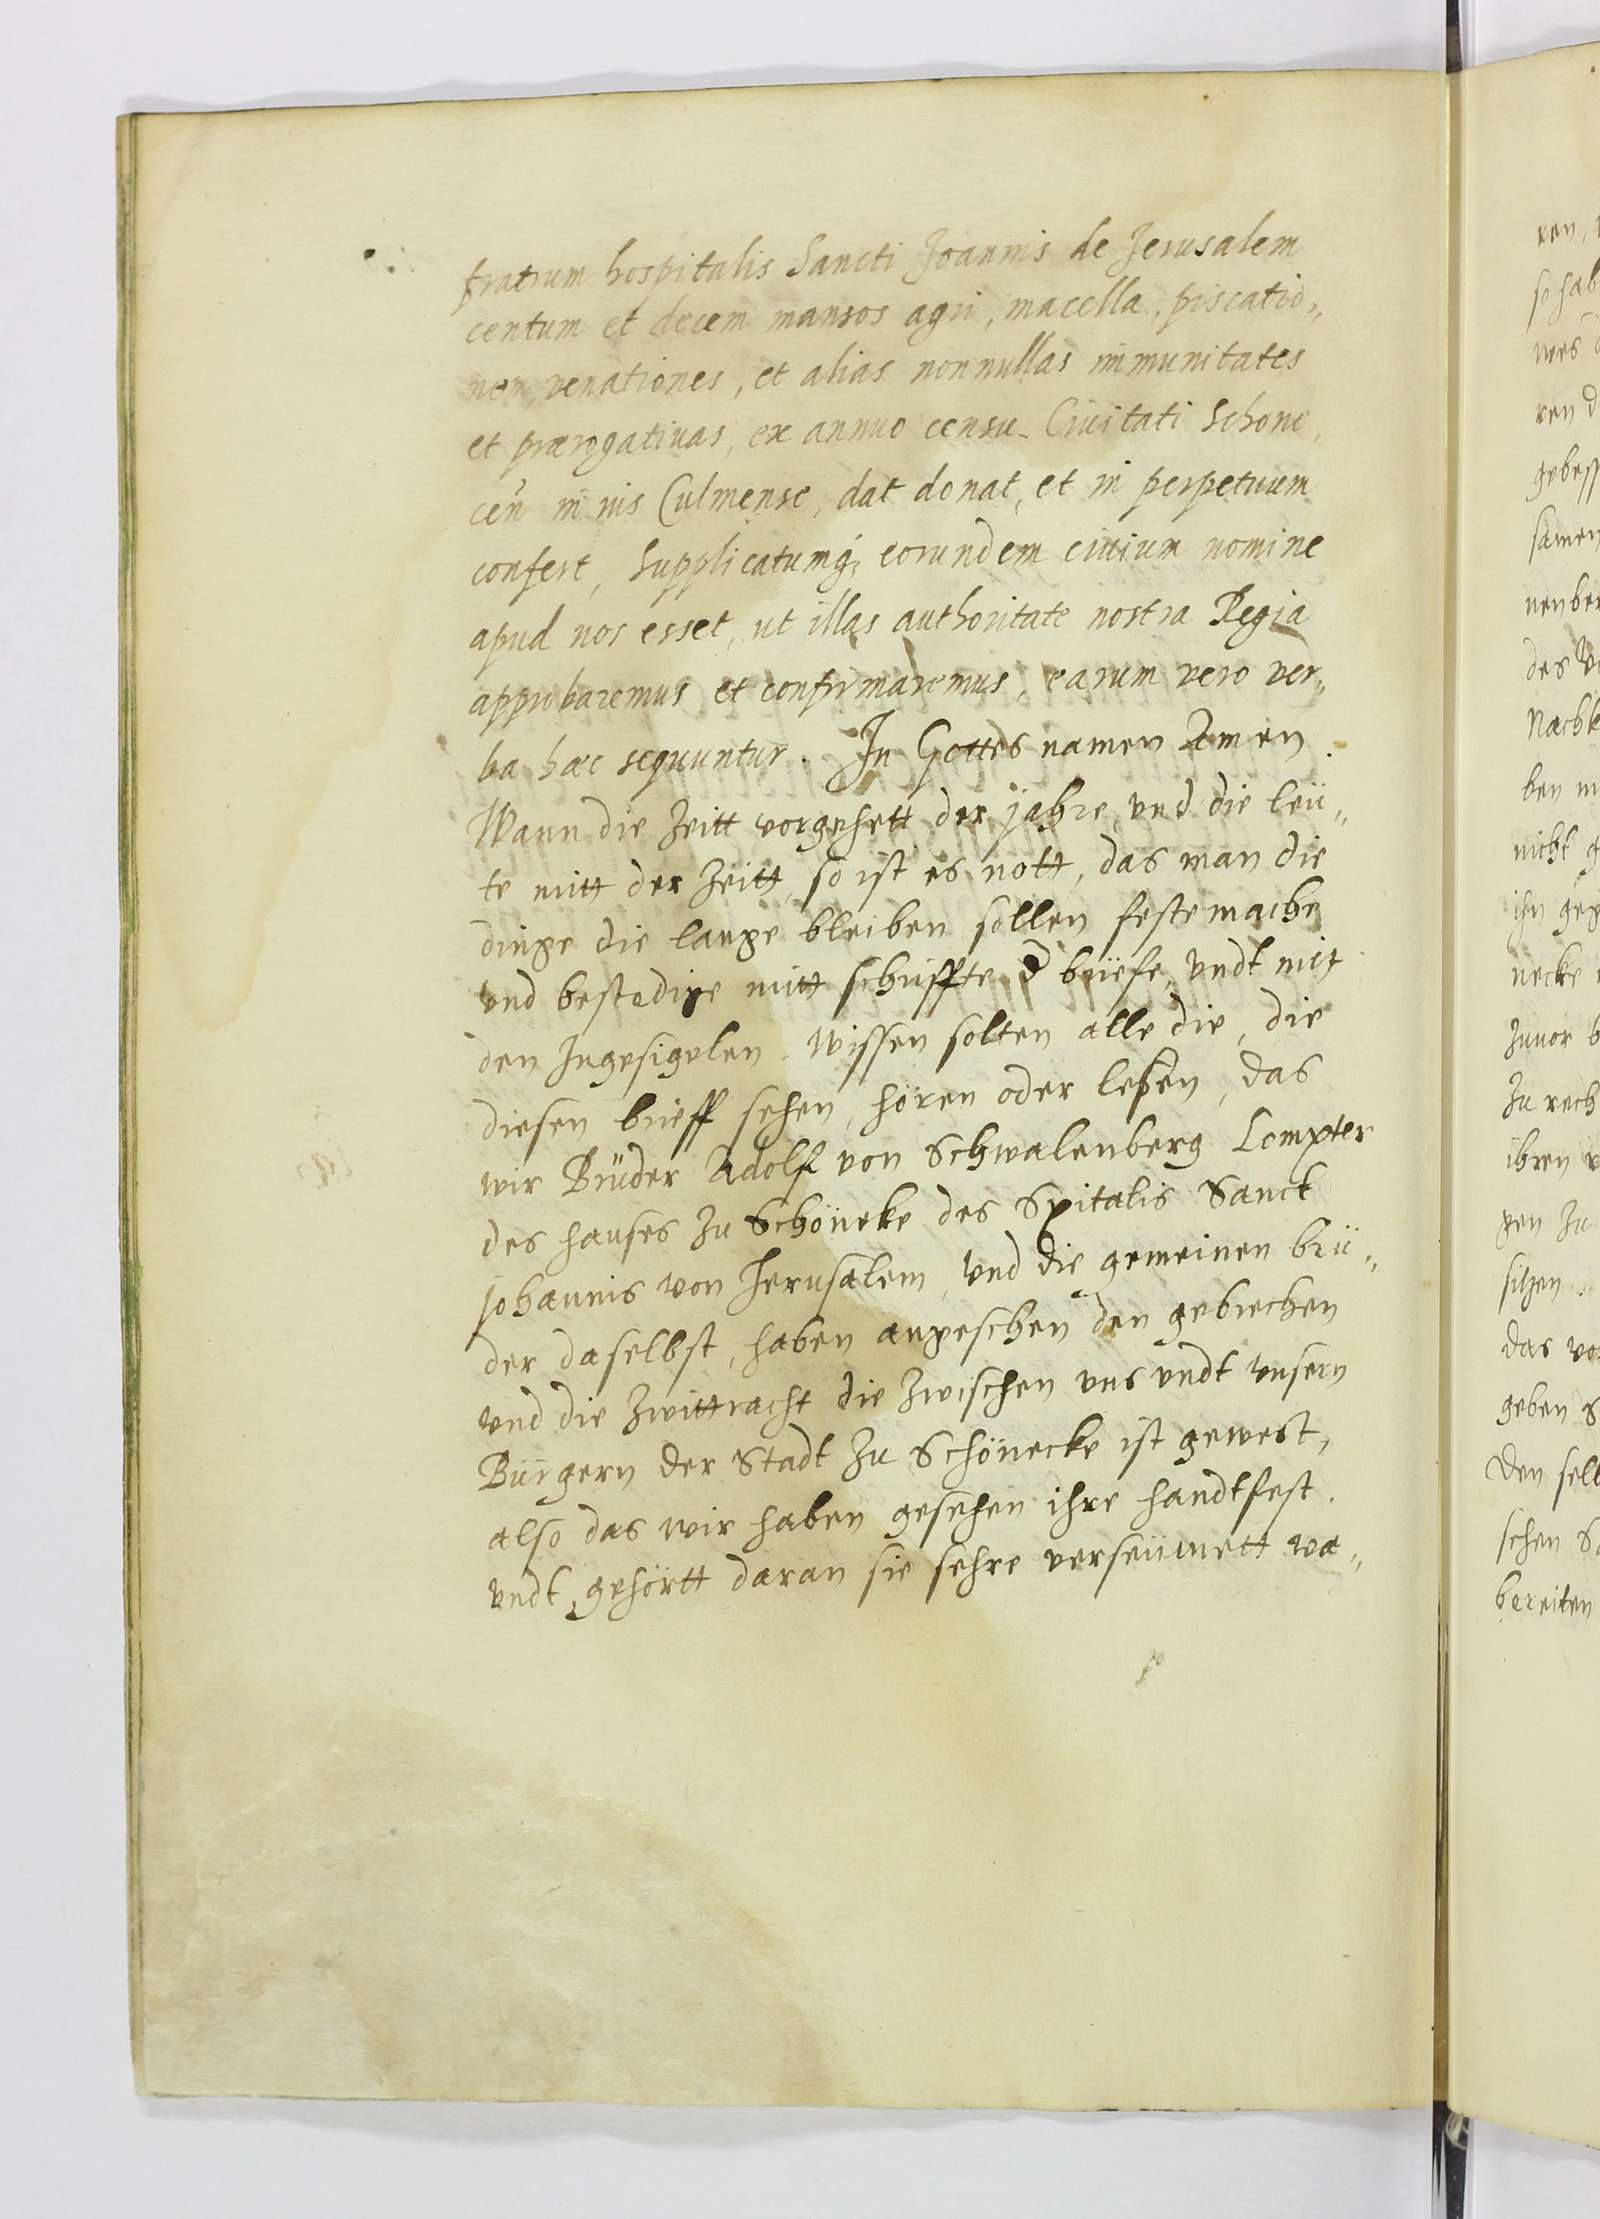 fratrum hospitalis Sancti Joannis de Jerusalem
centum et decem mansos agri, macella, piscatio„
nem, venationes, et alias nonnullas immunitates
et prærogativas, ex annuo censu Civitati Schone„
ceñ in ius Culmense, dat donat, et in perpetuum
confert, Supplicatumq; eorundem civium nomine
apud nos esset, ut illas authoritate nostra Regia
approbaremus et confirmaremus, earum vero ver„
ba hæc sequuntur. In Gottes namen Amen.
Wann die Zeitt vorgehett der jahre, vnd die leü„
te mitt der Zeitt, so ist es nott, das man die
dinge die lange bleiben sollen feste mache
vnd bestedige mitt schriffte briefe, vndt mit
den Ingesigelen. Wissen solten alle die, die
diesen brieff sehen, hören oder leßen, das
wir Brüder Adolf von Schwalenberg Compter
des hauses zu Schöneke des Spitalis Sanct
Johannis von Jerusalem, vnd die gemeinen brü„
der daselbst, haben angeschen den gebrechen
vnd die zwittracht die zwischen vns vndt vnsern
Bürgern der Stadt zu Schönecke ist gewest,
also das wir haben gesehen ihre handtfest.
vndt gehörtt daran sie sehre verseümett wa„
ren,
so hab
nes
ren d
gebess
samen
nenber
des
Nachk
ben
nicht g
ihn geg
necke
Zuuor b
Zu rech
ihren
gen zu
sitzen
das vo
geben s
den sel
schen
bereiten